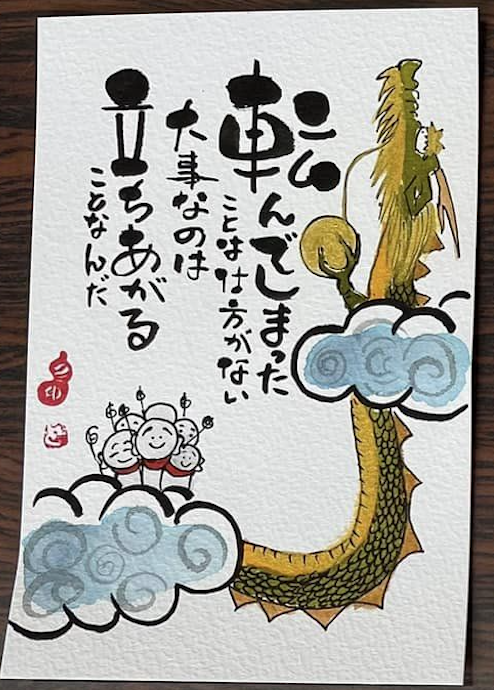 転んでしまった
ことは仕方がない
大事なのは
立ちあがる
ことなんだ